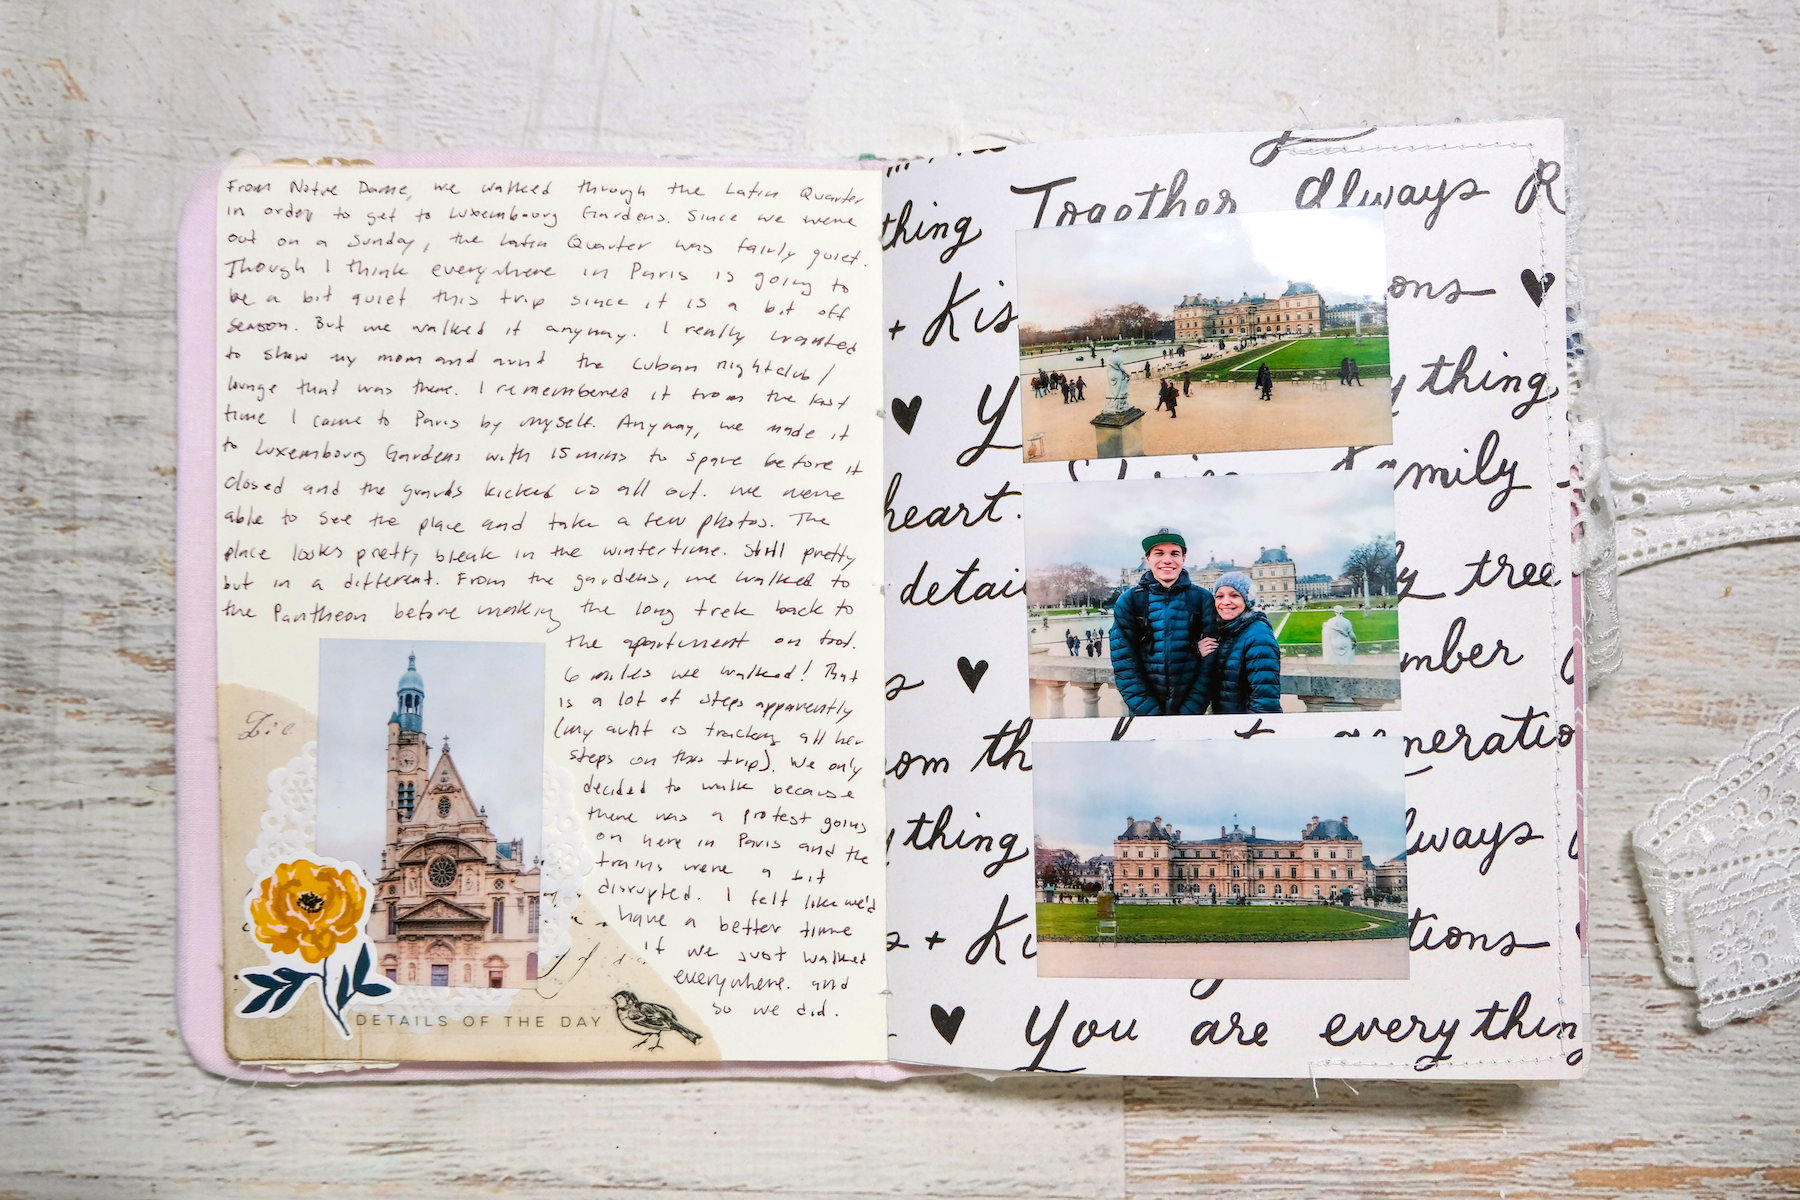 From Notre Dame, we walked through the Latin Quarter
in order to get to Luxembourg Gardens. Since we were
out on a Sunday, the Latin Quarter was fairly quiet.
Though I think everywhere in Paris is going to
be a bit quiet this trip since it is a bit off
season. But we walked it anyway. I really wanted
to show my mom and aunt the Cuban nightclub/
lounge that was there. I remembered it from the last
time I came to Paris by myself. Anyway, we made it
to Luxembourg Gardens with 15 mins to spare before it
closed and the guards kicked us all out. We were
able to see the place and take a few photos. The
place looks pretty bleak in the wintertime. Still pretty
but in a different. From the gardens, we walked to
the Pantheon before making the long trek back to
the apartment on foot.
6 miles we walked! That
is a lot of steps apparently
(my aunt is tracking all her
steps on this trip). We only
decided to walk because
there was a protest going
on here in Paris and the
trains were a bit
disrupted. I felt like we'd
have a better time
if we just walked
everywhere. and
so we did.
DETAILS OF THE DAY
Together Always R
thing
+ Kis
ons
Y
ything
heart.
family
detai
y tree
mber
s
om th
generatio
ything
lways
s + Ki
tions
You are everythin